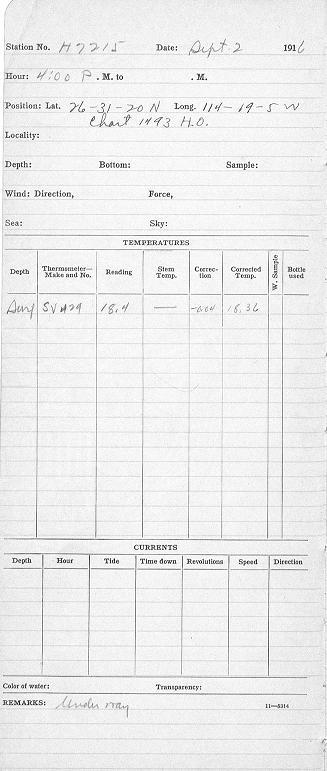 Station No. H7215 Date: Sept. 2 1916
Hour: 4:00 P. M. to . M.
Position: Lat. 26-31-20 N Long. 114-19-5 W
Chart 1493 H.O.
Locality:
Depth: Bottom: Sample:
Wind: Direction, Force,
Sea: Sky:
TEMPERATURES
Depth Thermometer—Make and No. Reading Stem Temp. Correction Corrected Temp. W. Sample Bottle used
Surf SV 429 18.4 — -0.04 18.36
CURRENTS
Depth Hour Tide Time down Revolutions Speed Direction
Color of water: Transparency:
REMARKS: Under way 11—5314